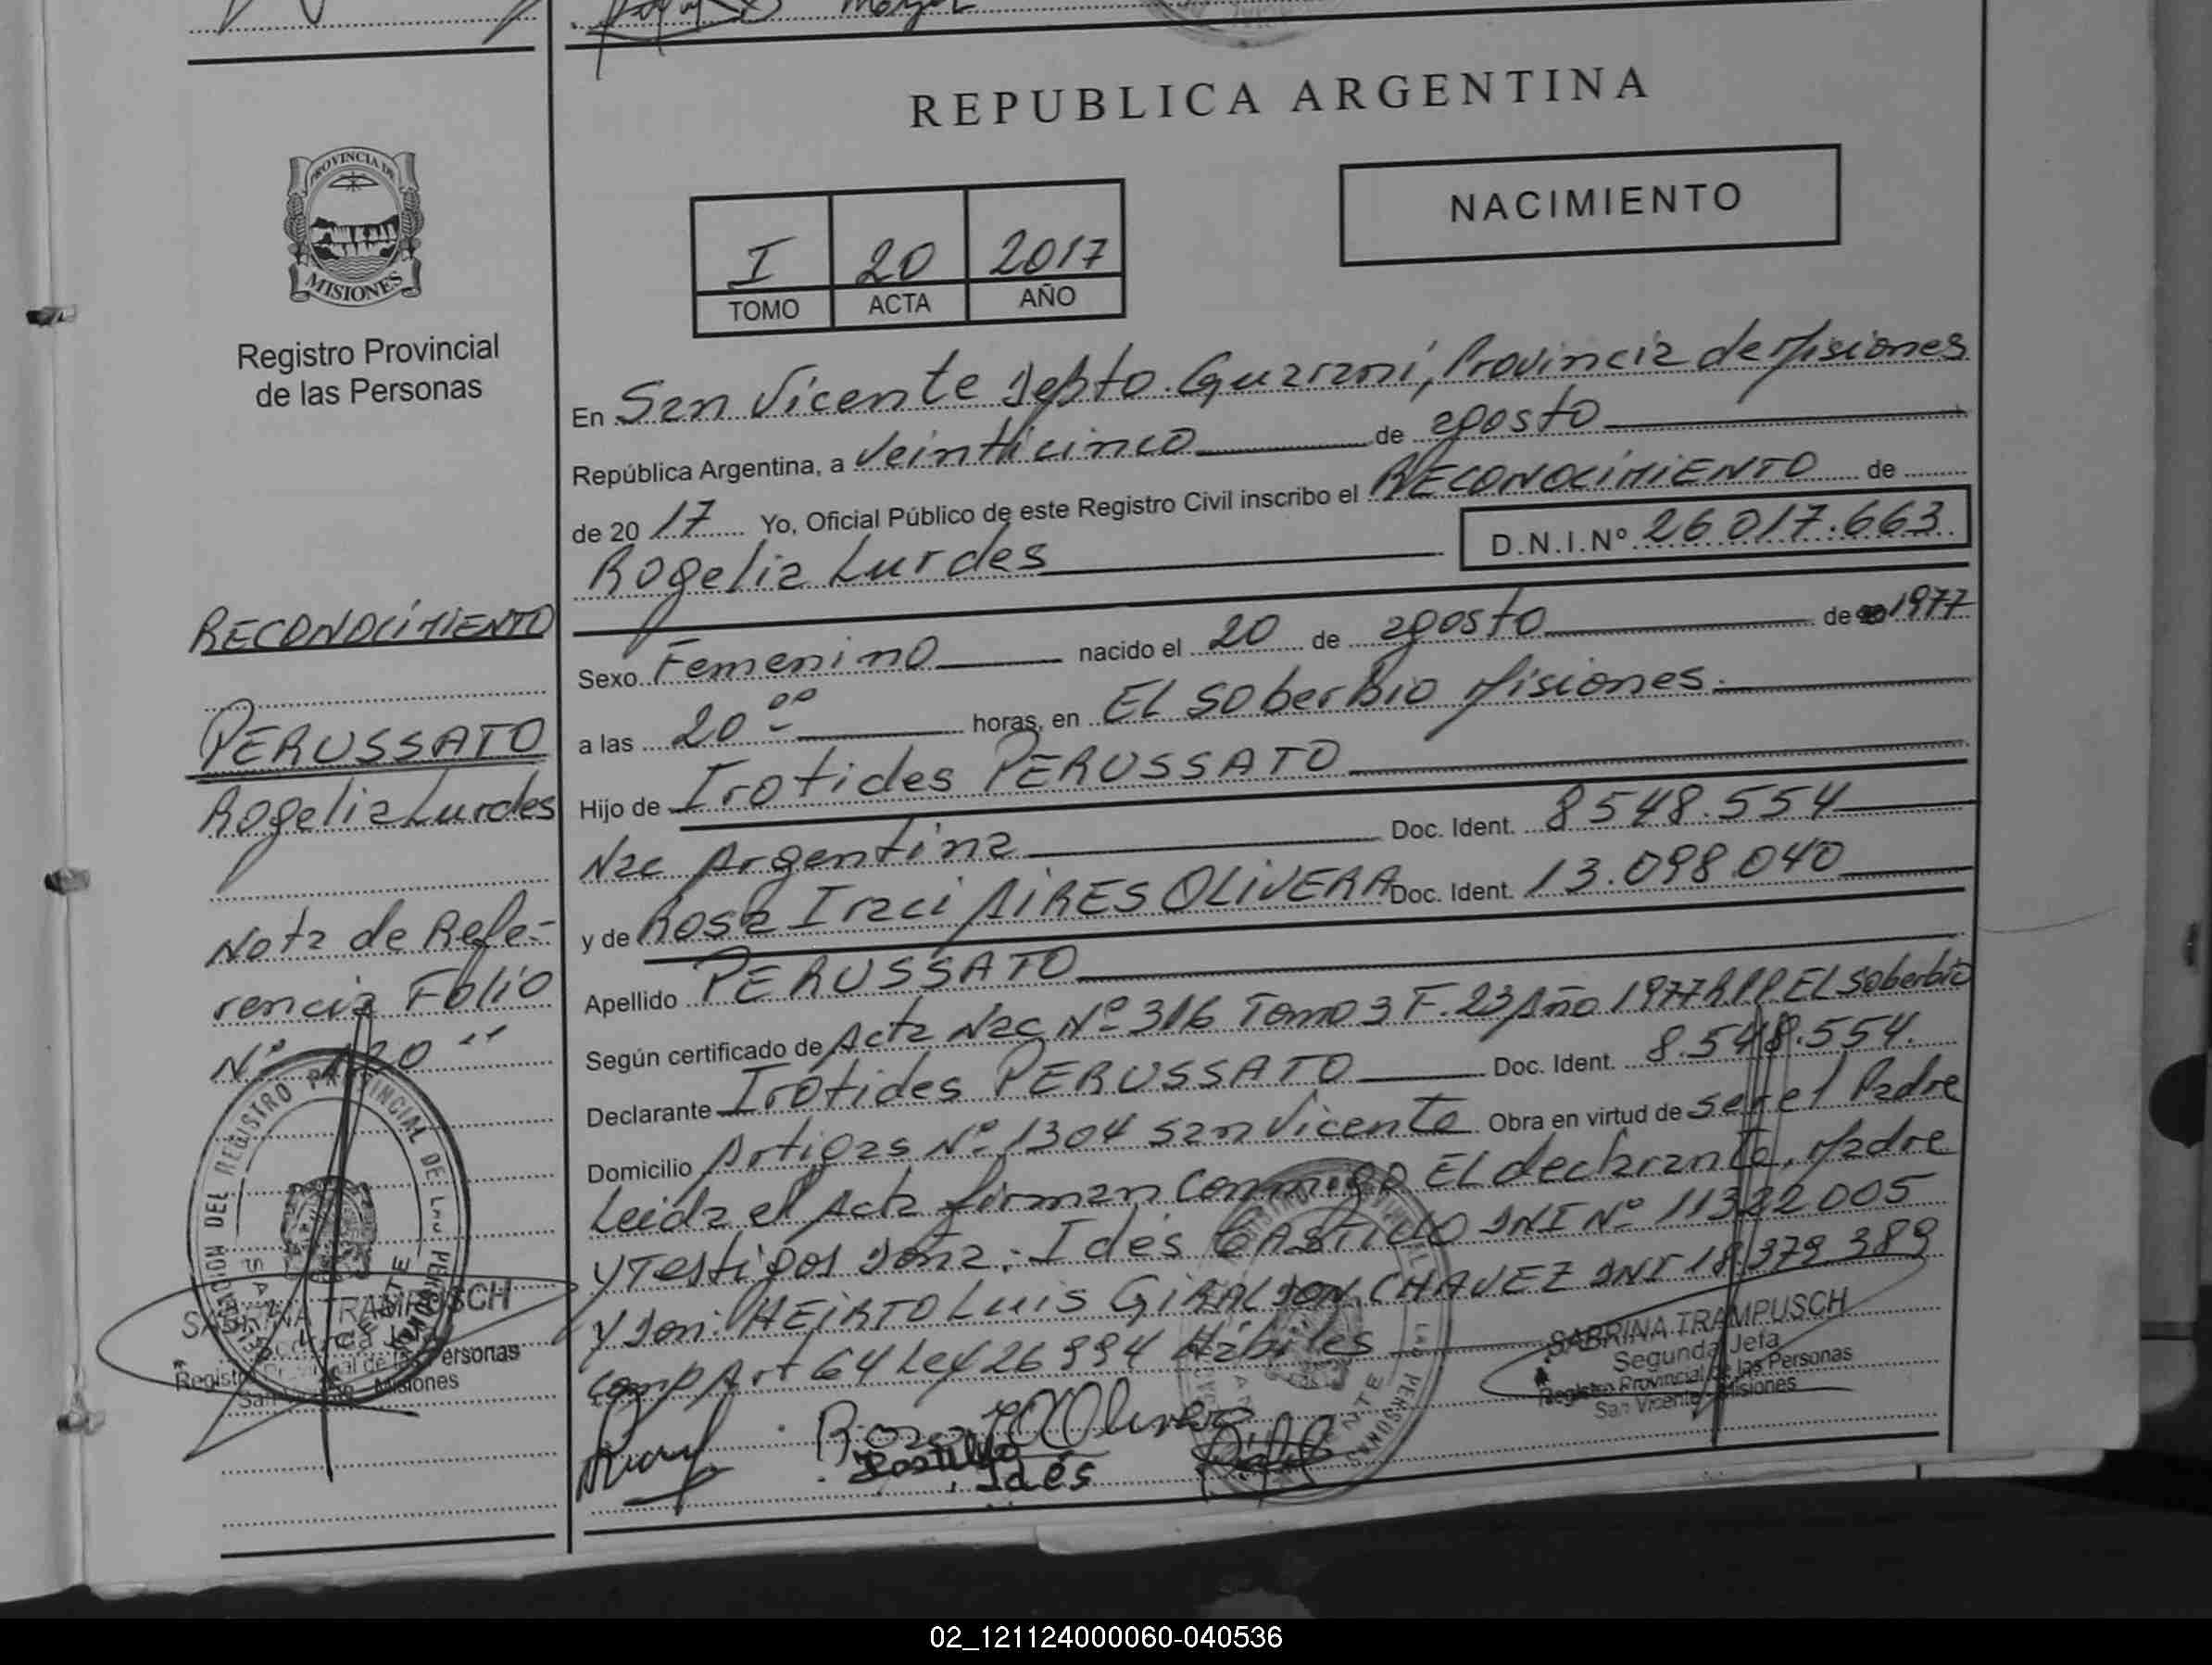 REPUBLICA ARGENTINA
PROVINCIA DE
MISIONES
Registro Provincial
de las Personas
NACIMIENTO
I 20 2017
TOMO ACTA AÑO
En San Vicente Depto. Guaraní, Provincia de Misiones
República Argentina, a Veinticinco de agosto
de 20 17 Yo, Oficial Público de este Registro Civil inscribo el RECONOCIMIENTO de
Rogelia Lurdes D.N.I.Nº 26.017.663
Sexo Femenino nacido el 20 de agosto de 1977
a las 20 ºº horas, en EL Soberbio Misiones.
Hijo de Irotides PERUSSATO
Nac Argentina Doc. Ident. 8548.554
y de Rosa Iraci AIRES OLIVERA Doc. Ident. 13.098.040
Apellido PERUSSATO
Según certificado de Acta Nac Nº 316 Tomo 3 F. 23 Año 1977 RPP EL Soberbio
Declarante Irotides PERUSSATO Doc. Ident. 8.548.554.
Domicilio Artigas Nº 1304 San Vicente Obra en virtud de ser el Padre
Leida el Acta firman conmigo EL declarante, Madre
y Testigos Doña: Ides CASTILLO DNI Nº 11322005
y Don: HEIRTO Luis GIRALDON CHAVEZ DNI 18.379.389
comp Art 64 Ley 26994 Hábiles
SABRINA TRAMPUSCH
Segunda Jefa
Registro Provincial de las Personas
San Vicente Misiones
Castillo
Ides
RECONOCIMIENTO
PERUSSATO
Rogelia Lurdes
Nota de Refe-
rencia Folio
Nº 120 "
SABRINA TRAMPUSCH
Registro Provincial de las Personas
San Vicente Misiones
02_121124000060-040536